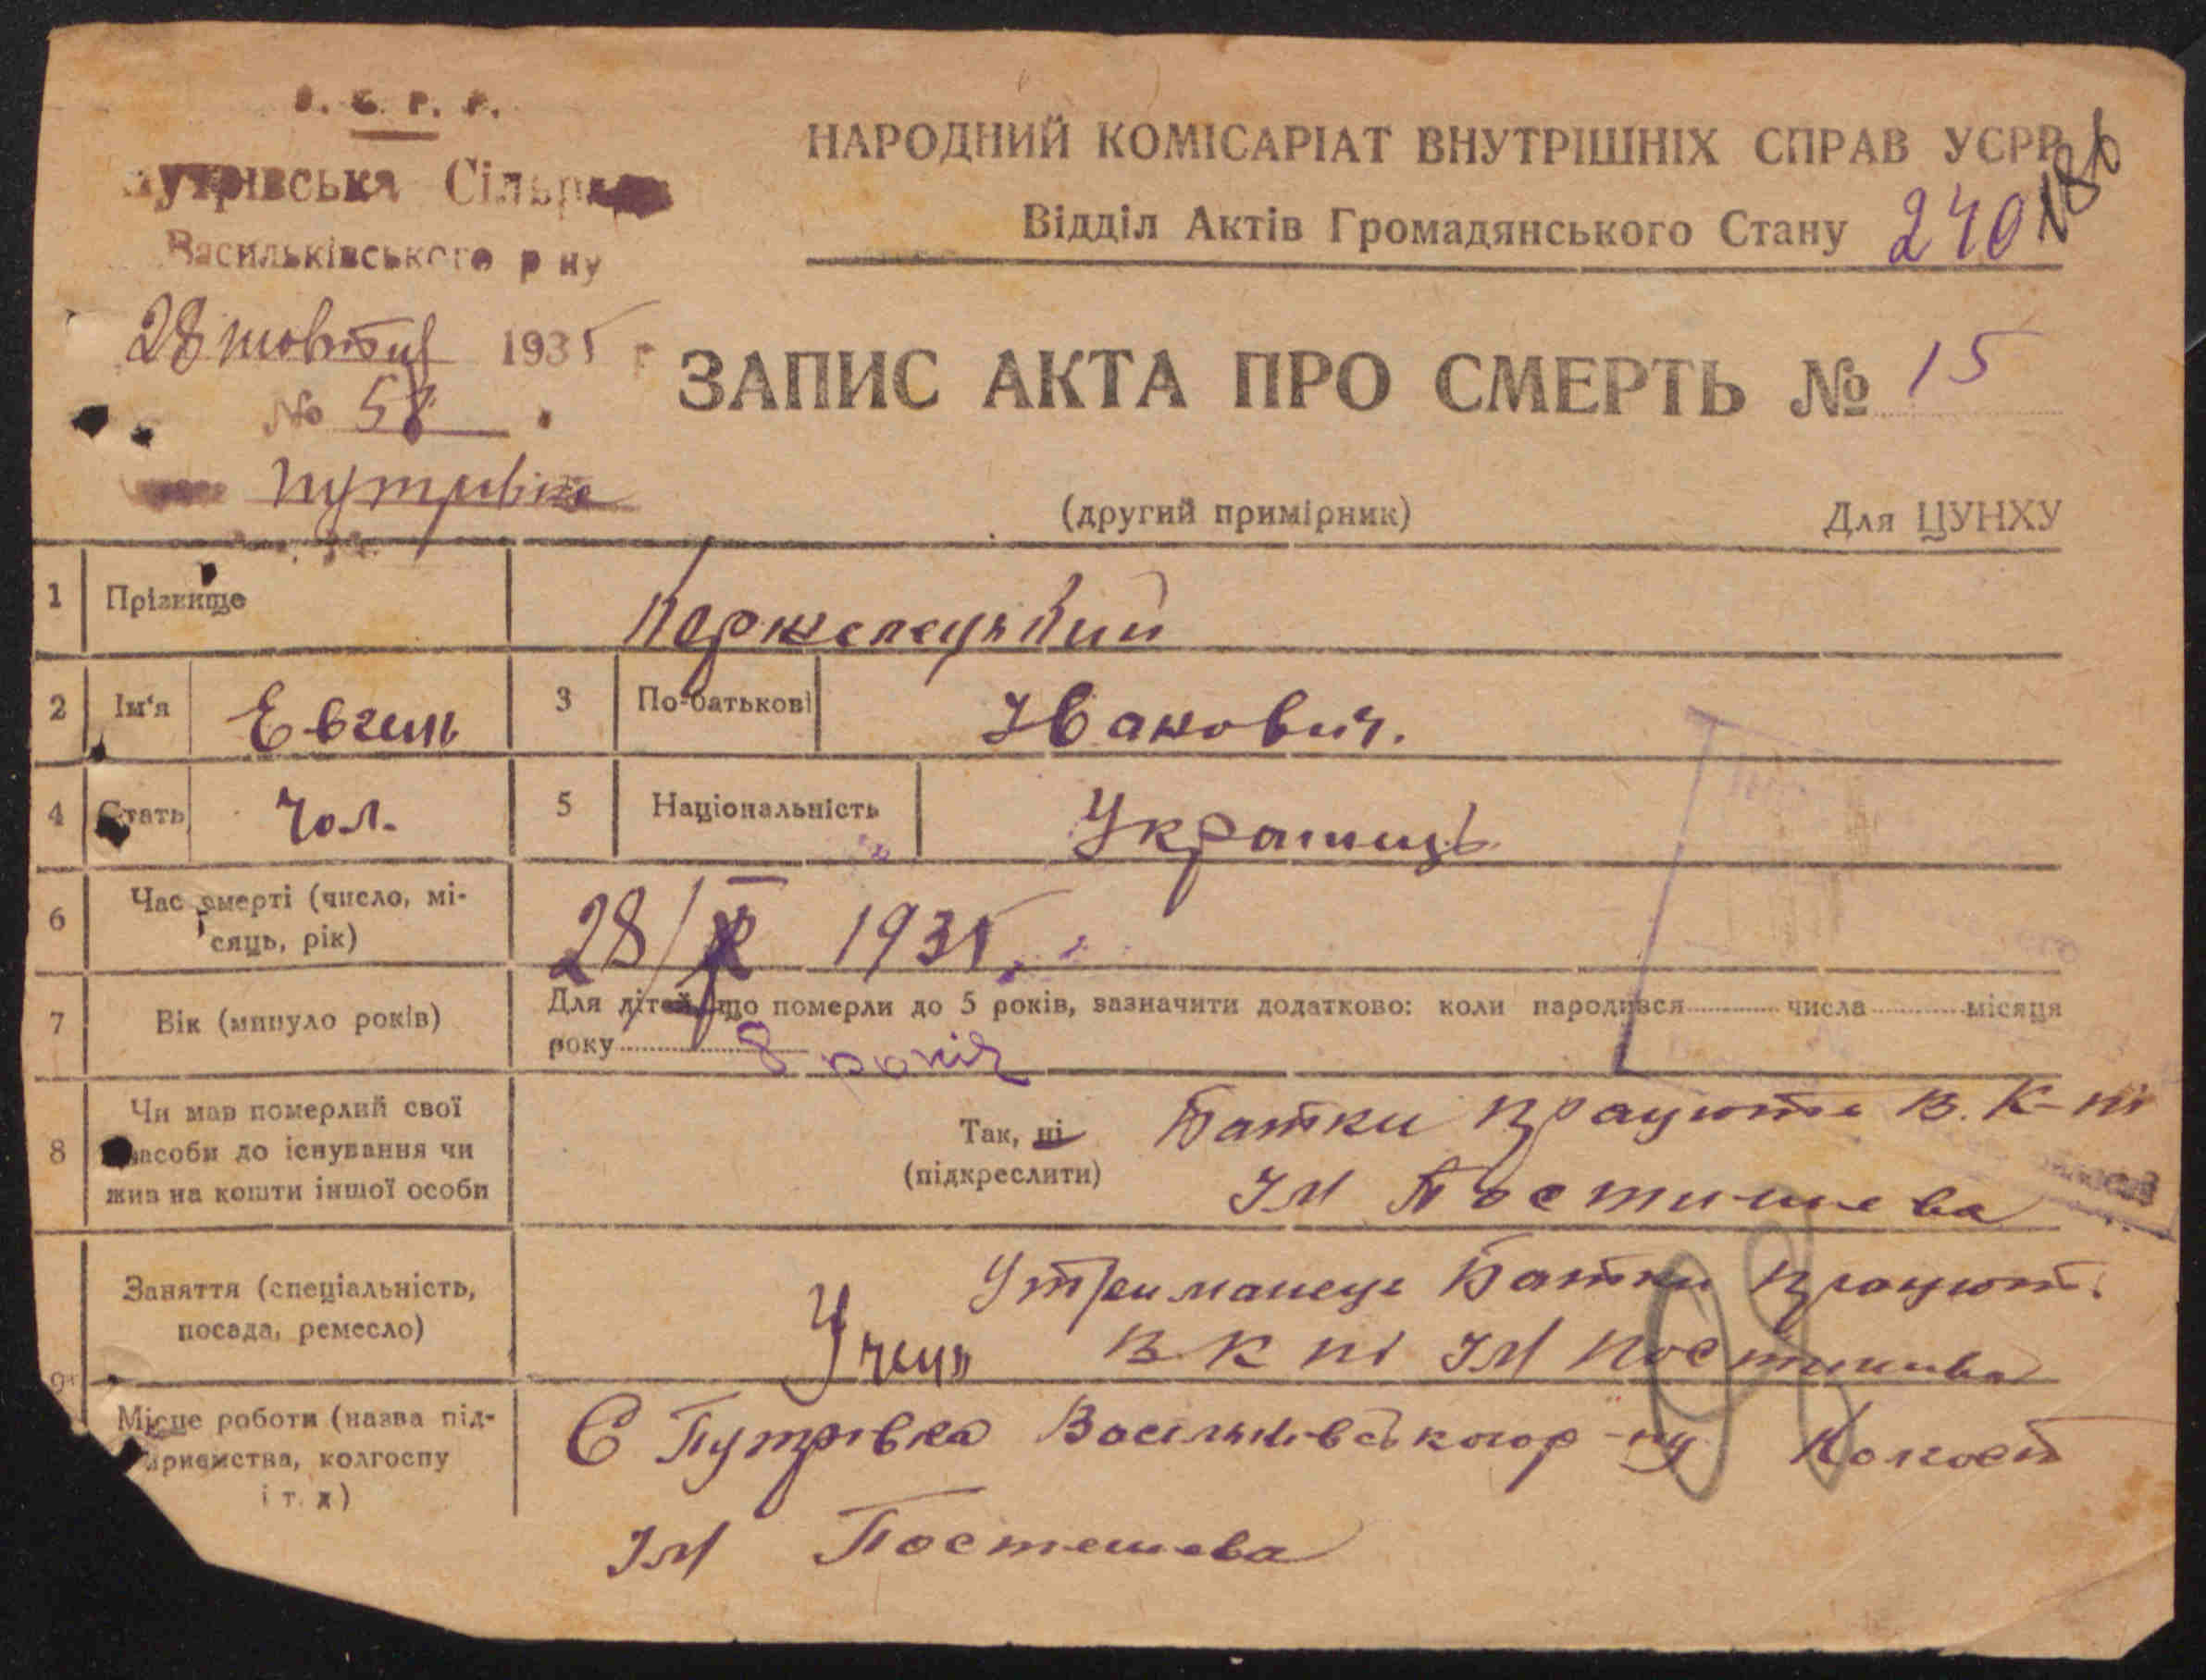 У. С. Р. Р.
Путрівська Сільрада
Васильківського р ну
28 жовтня 1935 р
№ 58
Путрівка
НАРОДНИЙ КОМІСАРІАТ ВНУТРІШНІХ СПРАВ УСРР
Відділ Актів Громадянського Стану 240
ЗАПИС АКТА ПРО СМЕРТЬ № 15
(другий примірник) Для ЦУНХУ
1 Прізвище Коржелецький
2 Ім'я Евгень 3 По-батькові Іванович.
4 Стать Чол. 5 Національність Украпиць
6 Час смерті (число, місяць, рік) 28/X 1935
7 Вік (минуло років) Для дітей, що померли до 5 років, зазначити додатково: коли народився числа місяця
року 8 років
8 Чи мав померлий свої
засоби до існування чи
жив на кошти іншої особи
Так, ні
(підкреслити)
Батки працюють в. К-пі
Ім Постишева
9 Заняття (спеціальність,
посада, ремесло)
Утриманець Батки працют.
Учень в К пі Ім Постишева
Місце роботи (назва під-
приємства, колгоспу
і т. д)
С Путрівка Васильківськогор-ну
Ім Постешева